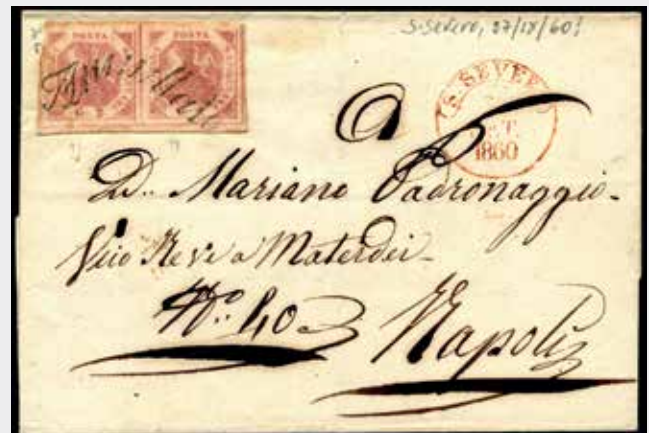 S. Severo, 27/IX/60!
POSTA POSTA
Annullato
S. SEVER
T.
1860
A
D. Mariano Padronaggio
Vico Neve a Materdei
N.° 40
Napoli